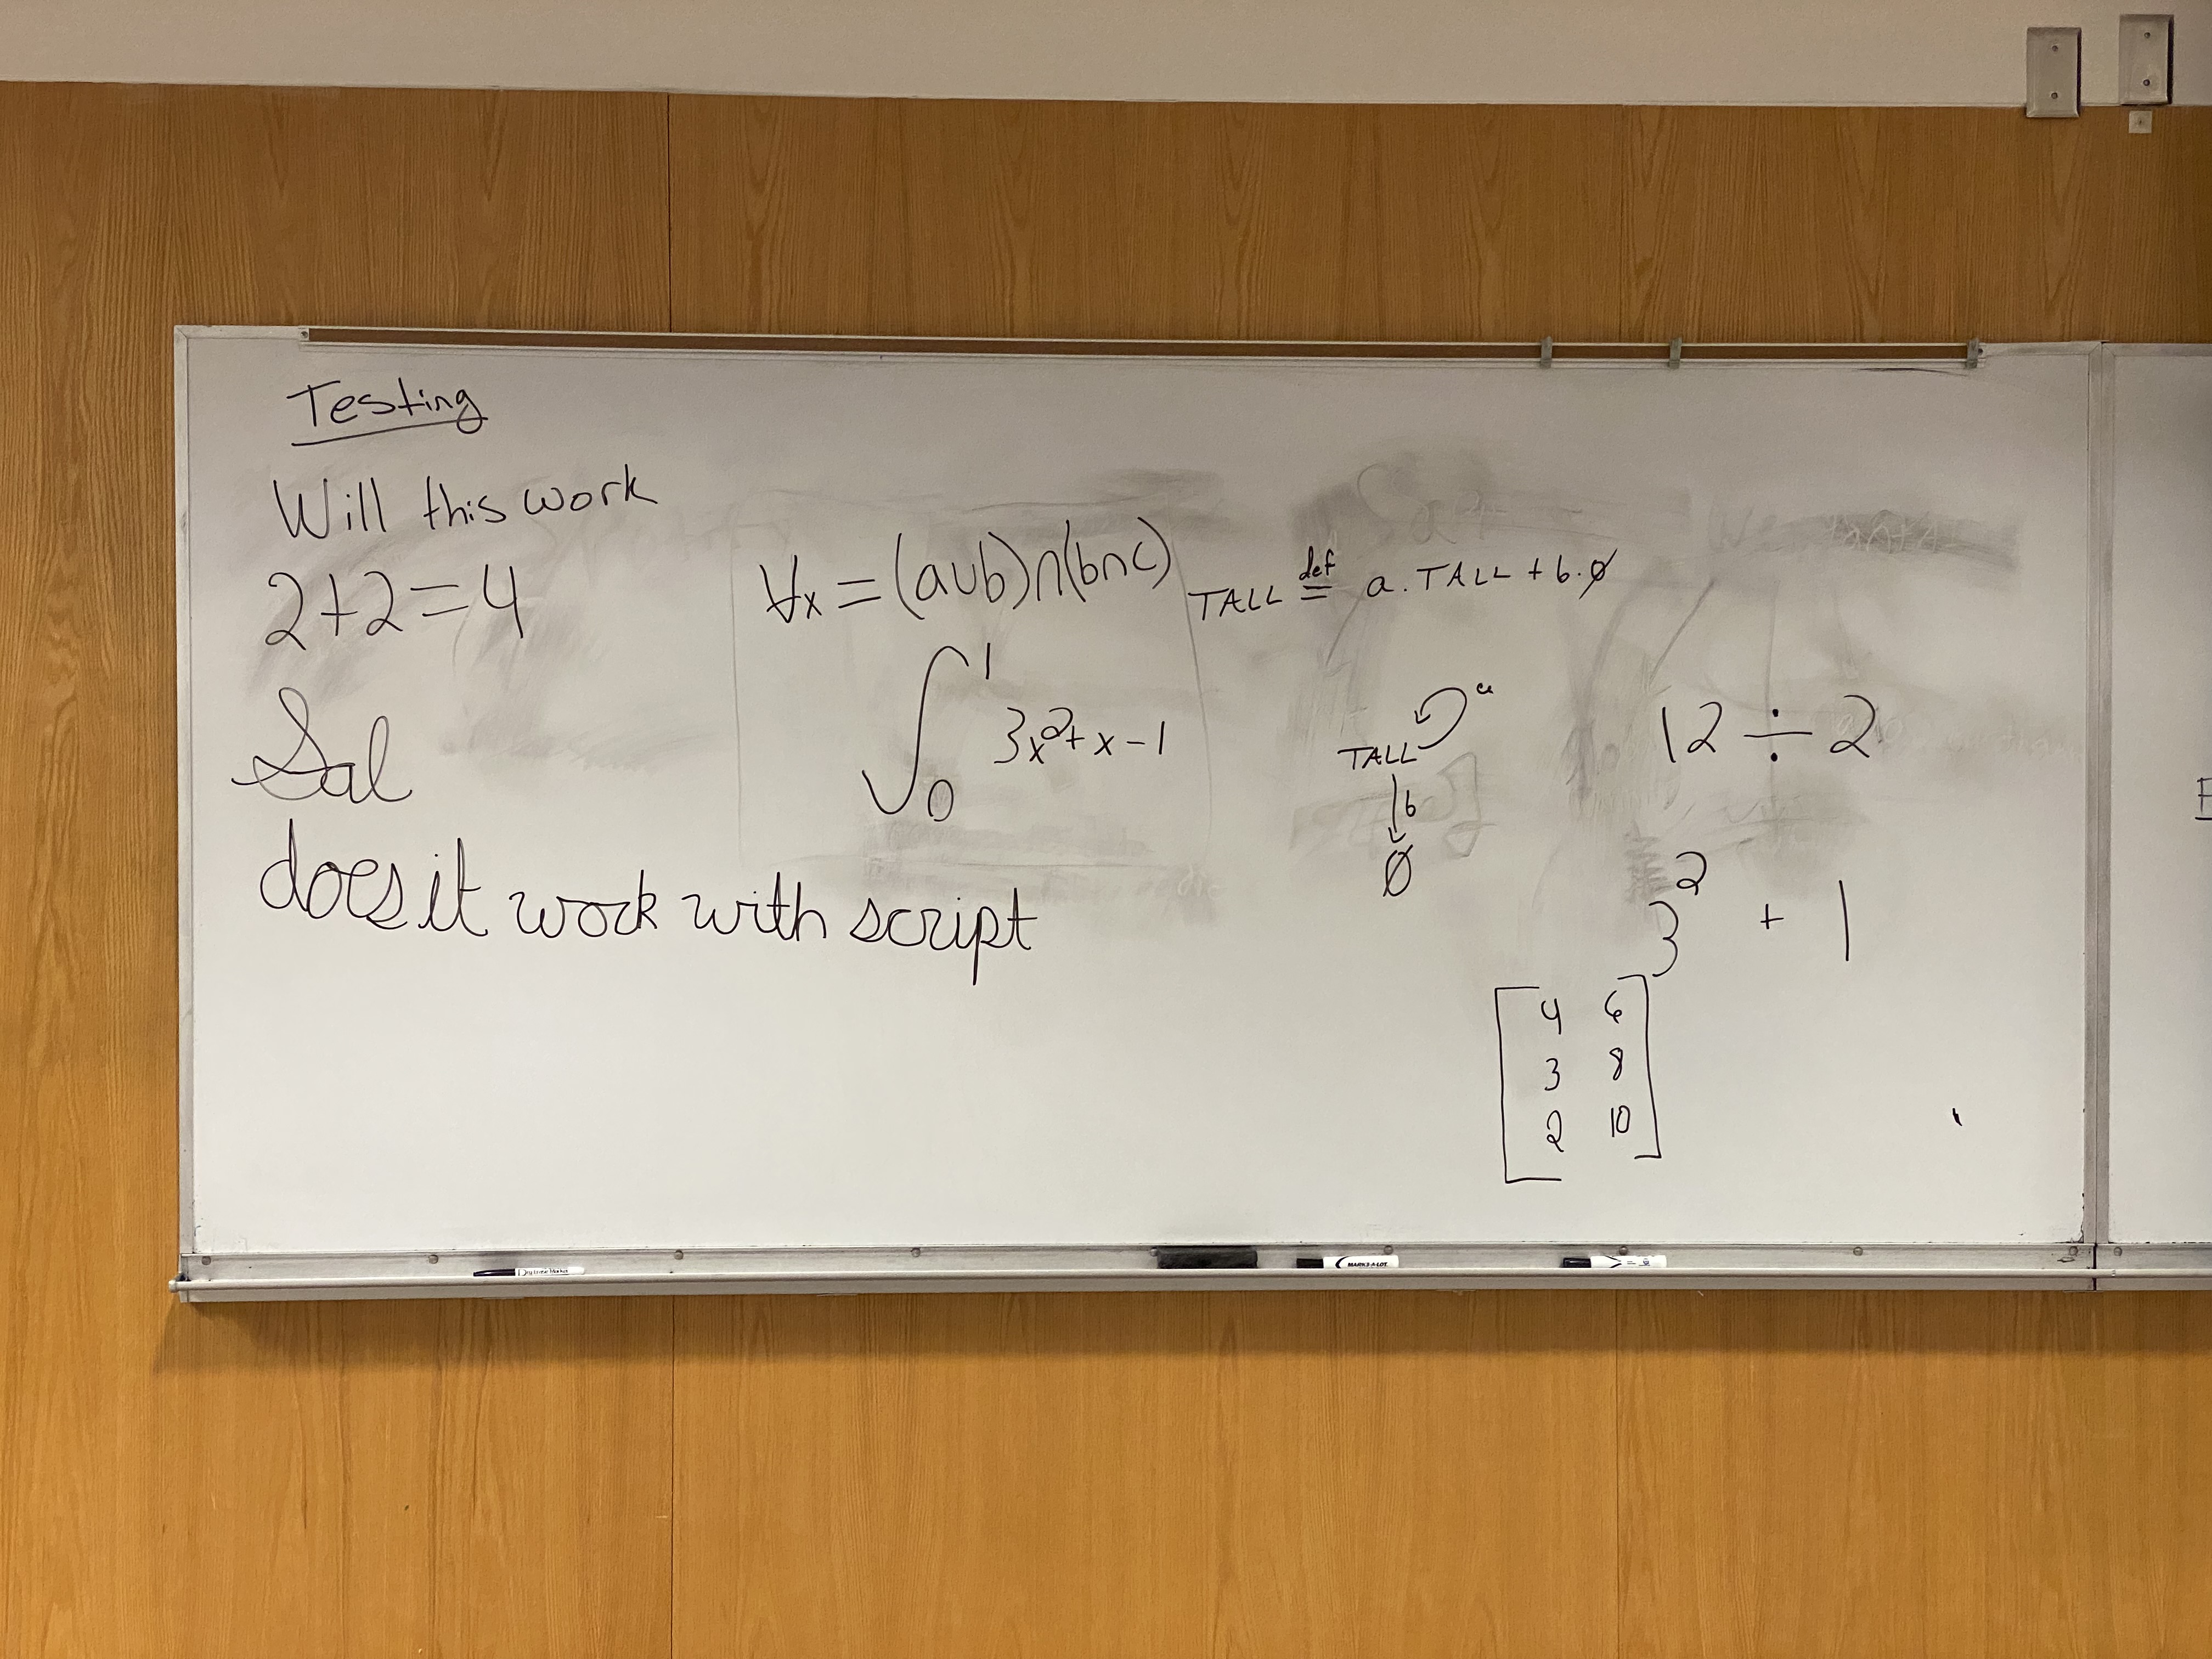 Testing
Will this work
2+2=4
Sal
does it work with script
∀x = (a∪b)∩(b∩c)
∫₀¹ 3x²+x-1
TALL def= a.TALL + b.∅
a
TALL
b
∅
12 ÷ 2
3² + 1
4 6
3 8
2 10
MARKS-A-LOT